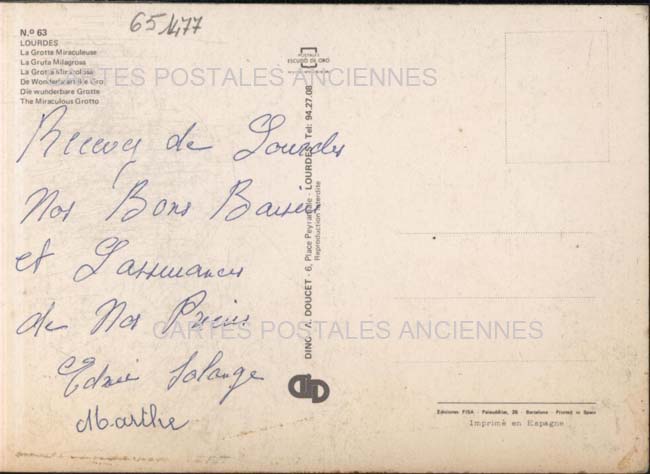 651477
N.º 63
LOURDES
La Grotte Miraculeuse
La Gruta Milagrosa
La Grotta Miracolosa
Die wunderbare Grotte
The Miraculous Grotto
POSTALES
ESCUDO DE ORO
CARTES POSTALES ANCIENNES
Recevez de Lourdes
Nos Bons Baisers
et L'assurances
de Nos Prières
Solange
Marthe
DINO A. DOUCET - 6, Place Peyramale - LOURDES - Tel: 94.27.08
Reproduction interdite
CARTES POSTALES ANCIENNES
Ediciones FISA - Palaudarias, 26 - Barcelona - Printed in Spain
Imprimé en Espagne